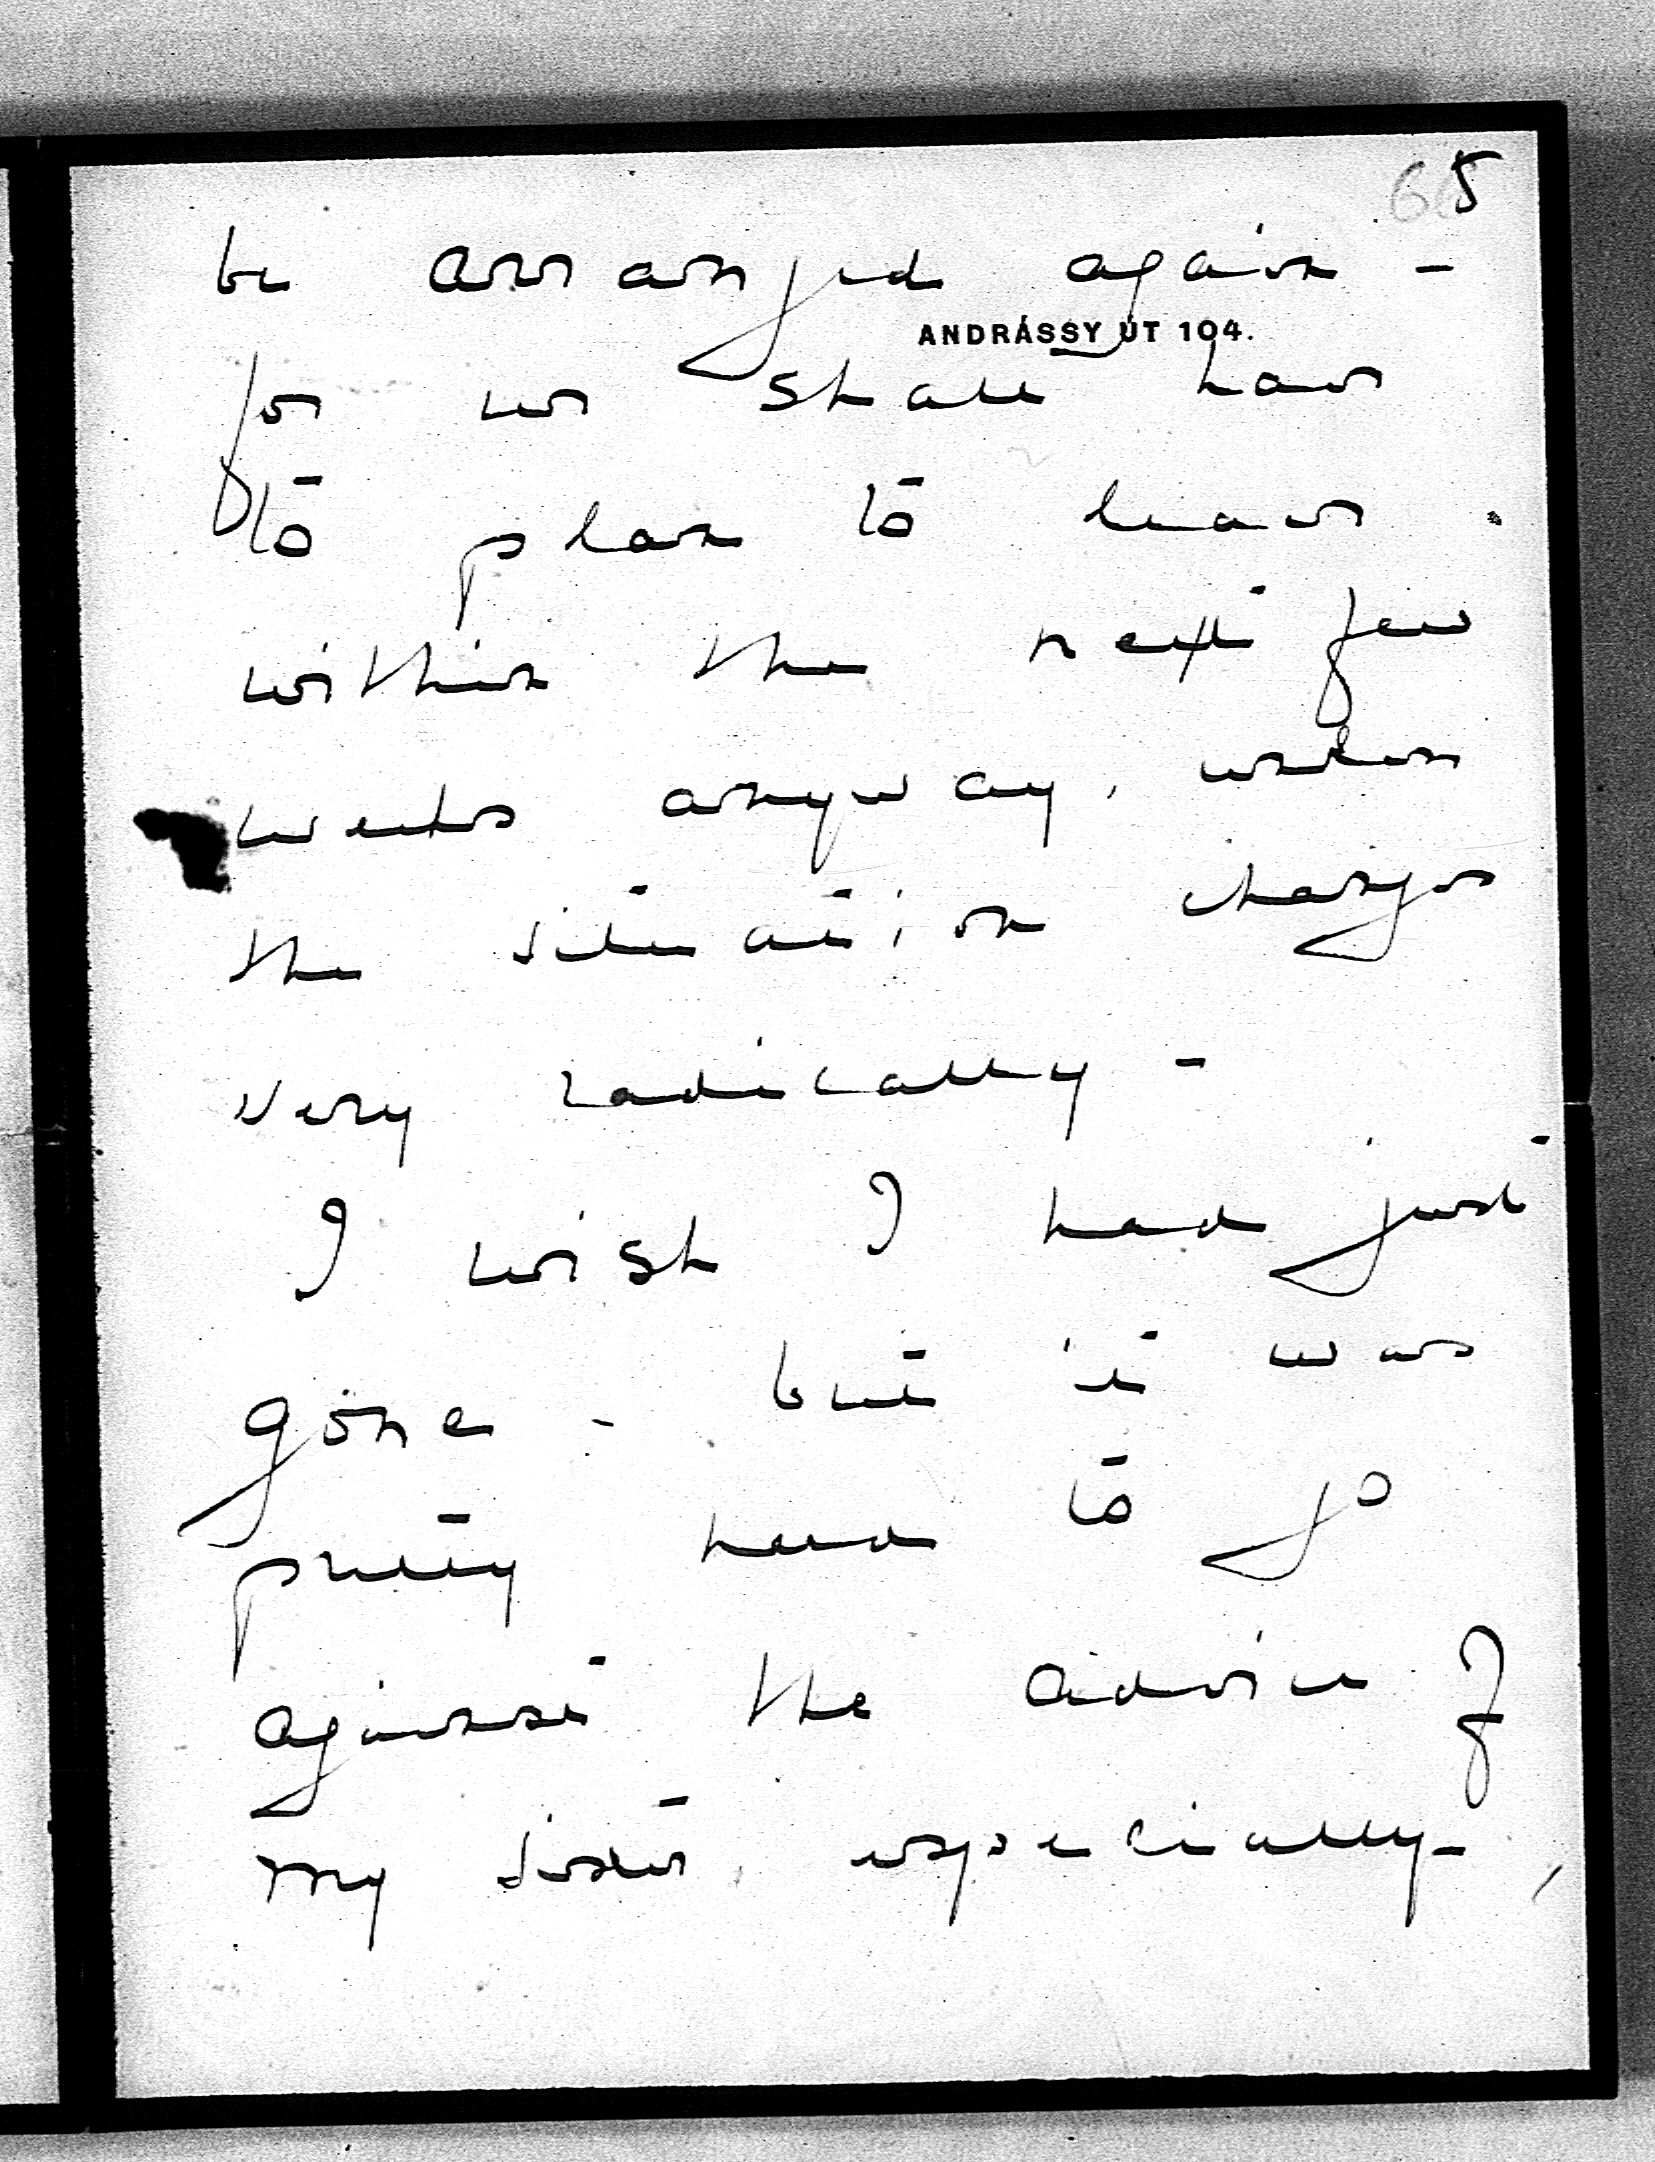 5
be arranged again -
ANDRÁSSY ÚT 104.
for we shall have
to plan to leave
within the next few
weeks anyway, unless
the situation changes
very radically -
I wish I had just
gone - but it was
pretty hard to go
against the advice of
my sister, especially -